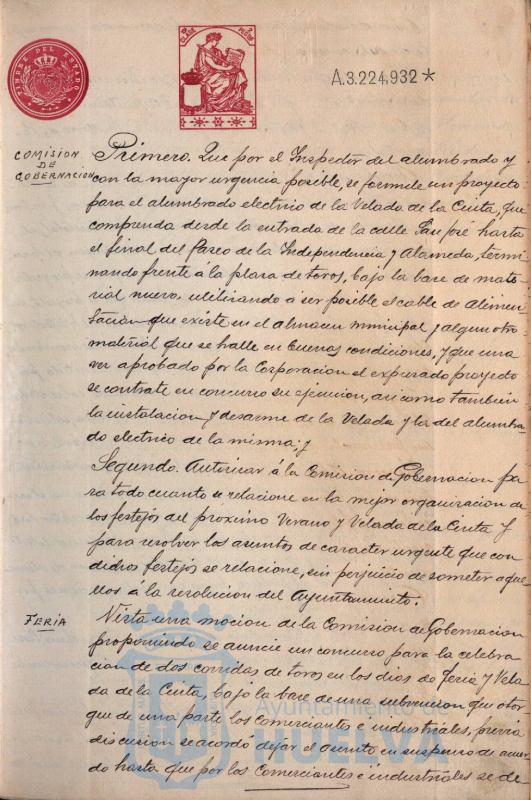 TIMBRE DEL ESTADO
A.3.224.932*
COMISION
DE
GOBERNACION
Primero. Que por el Inspector del alumbrado y
con la mayor urgencia posible, se formule un proyecto
para el alumbrado electrico de la Velada de la Cinta, que
comprenda desde la entrada de la calle San José hasta
el final del Paseo de la Independencia y Alameda, termi-
nando frente á la plaza de toros, bajo la base de mate-
rial nuevo, utilizando á ser posible el cable de alimen-
tación que existe en el almacen municipal y algun otro
material que se halle en buenas condiciones, y que una
vez aprobado por la Corporacion el expresado proyecto
se contrate en concurso su ejecucion, asi como tambien
la instalacion y desarme de la Velada y la del alumbra-
do electrico de la misma; y
Segundo. Autorizar á la Comision de Gobernacion pa
ra todo cuanto se relacione en la mejor organizacion de
los festejos del proximo Verano y Velada de la Cinta y
para resolver los asuntos de caracter urgente que con
dichos festejos se relacione, sin perjuicio de someter aque
llos á la resolucion del Ayuntamiento.
FERIA
Vista una mocion de la Comision de Gobernacion
proponiendo se anuncie un concurso para la celebra-
cion de dos corridas de toros en los dias de Feria y Vela
da de la Cinta, bajo la base de una subvencion que otor
gue de una parte los comerciantes e industriales, previa
discusion se acordó dejar el asunto en suspenso de acuer
do hasta que por los Comerciantes é industriales se de
Ayuntamiento de
HUELVA